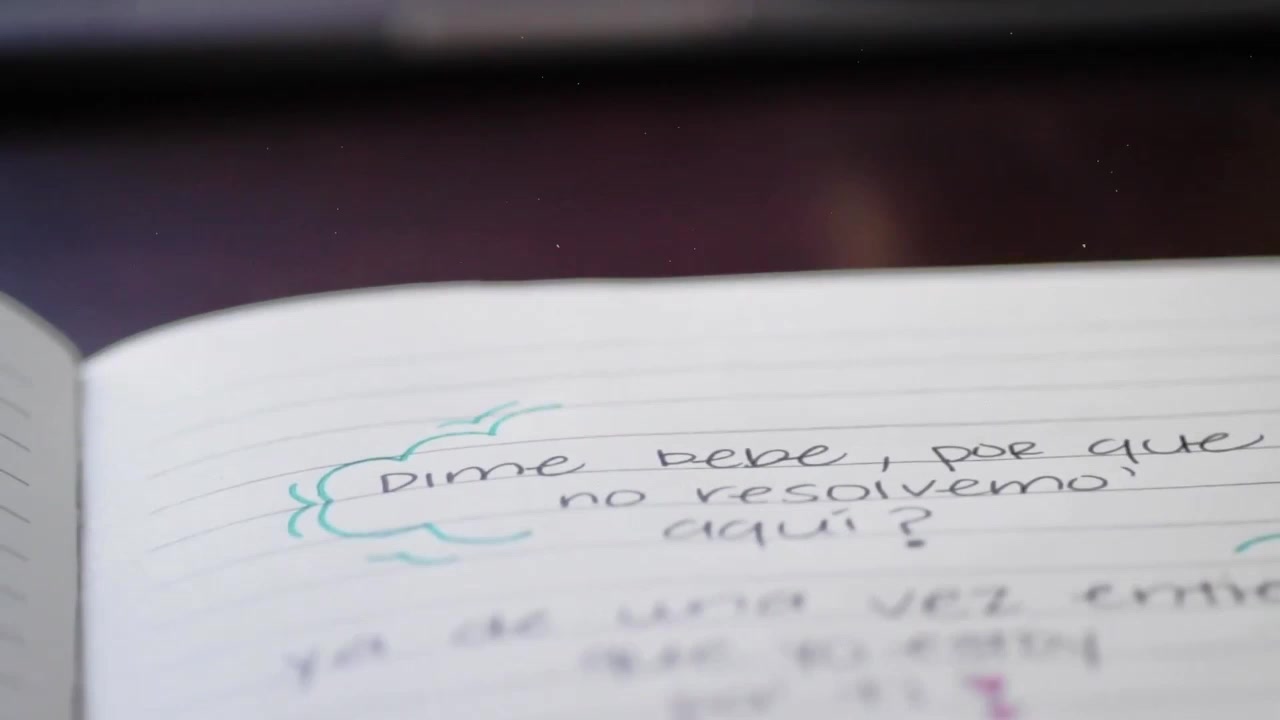 Dime bebe, por que
no resolvemo'
aquí?
ya de una vez
que yo estoy
por ti